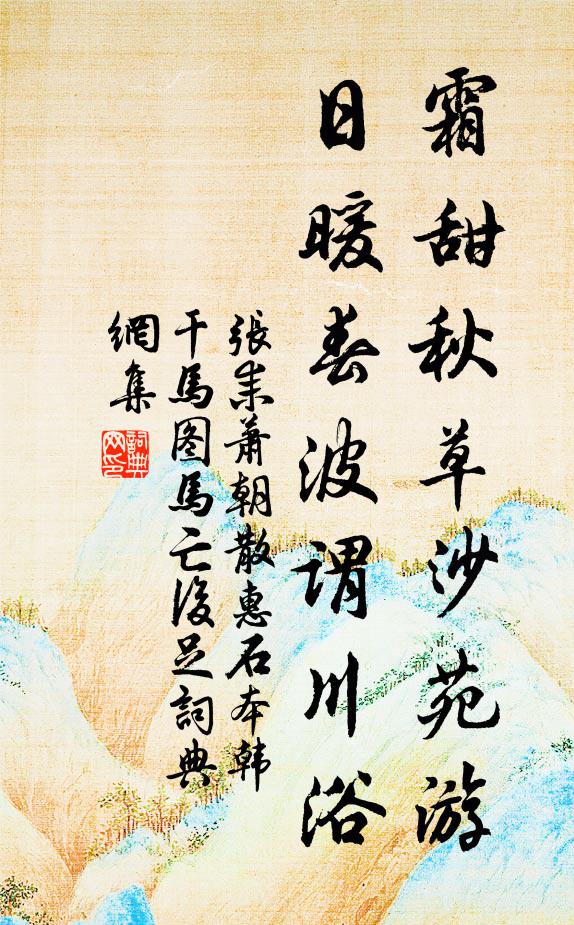 霜甜秋草沙苑游
日暖春波谓川浴
張耒萧朝散惠石本韩
干馬图馬亡後足詞典
網集
詞典網印